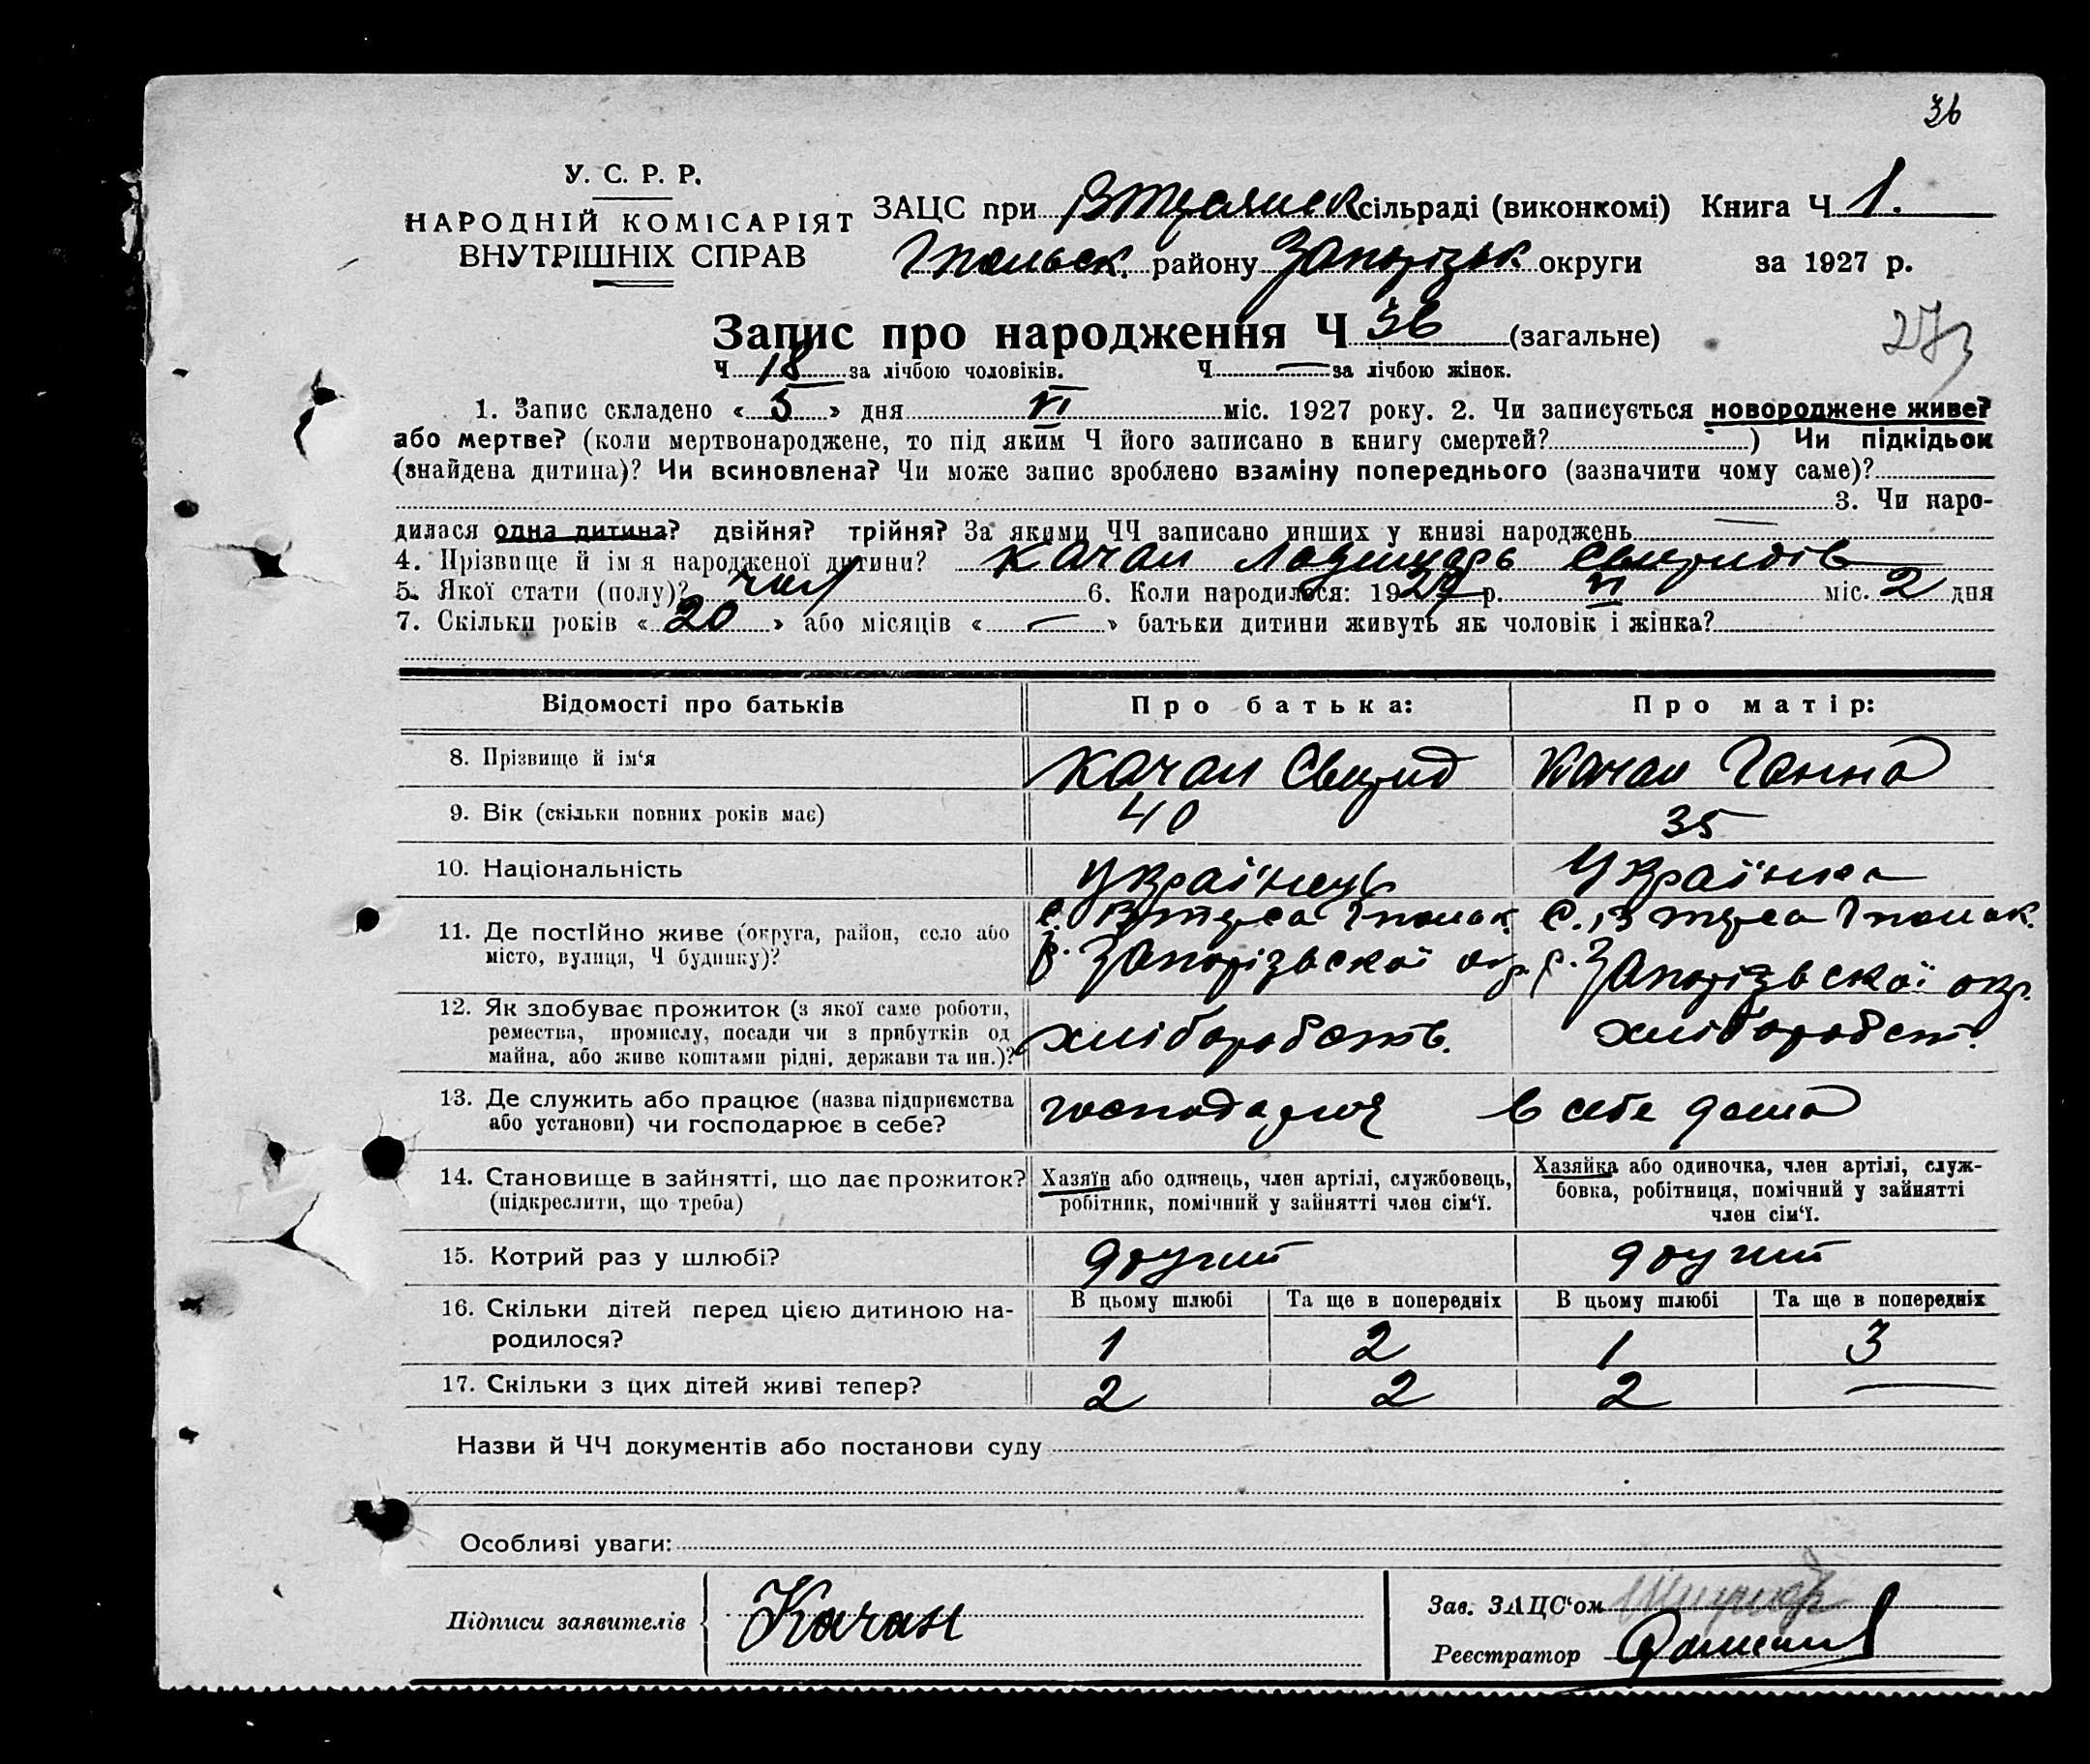 36
У. С. Р. Р.
НАРОДНІЙ КОМІСАРІЯТ
ВНУТРІШНІХ СПРАВ
ЗАЦС при сільраді (виконкомі) Книга Ч 1.
району Запорізьк округи за 1927 р.
Запис про народження Ч 36 (загальне)
273
Ч 18 за лічбою чоловіків. Ч — за лічбою жінок.
1. Запис складено « 5 » дня VI міс. 1927 року. 2. Чи записується новороджене живе?
або мертве? (коли мертвонароджене, то під яким Ч його записано в книгу смертей? ) Чи підкідьок
(знайдена дитина)? Чи всиновлена? Чи може запис зроблено взаміну попереднього (зазначити чому саме)?
3. Чи наро-
дилася одна дитина? двійня? трійня? За якими ЧЧ записано инших у книзі народжень —
4. Прізвище й ім я народженої дитини? Качан Свиридів
5. Якої стати (полу)? чол 6. Коли народилося: 1927 р. VI міс. 2 дня
7. Скільки років « 20 » або місяців « — » батьки дитини живуть як чоловік і жінка?
Відомості про батьків Про батька: Про матір:
8. Прізвище й ім‘я Качан Свирид Качан Ганна
9. Вік (скільки повних років має) 40 35
10. Національність Українець Українка
11. Де постійно живе (округа, район, село або
місто, вулиця, Ч будинку)? р. Запорізької окр. р. Запорізької окр.
12. Як здобуває прожиток (з якої саме роботи,
ремества, промислу, посади чи з прибутків од
майна, або живе коштами рідні, держави та ин.)? хліборобств. хліборобст.
13. Де служить або працює (назва підприємства
або установи) чи господарює в себе? господарює в себе дома
14. Становище в зайнятті, що дає прожиток?
(підкреслити, що треба)
Хазяїн або одинець, член артілі, службовець,
робітник, помічний у зайнятті член сім‘ї.
Хазяйка або одиночка, член артілі, служ-
бовка, робітниця, помічний у зайнятті
член сім‘ї.
15. Котрий раз у шлюбі? другий другий
16. Скільки дітей перед цією дитиною на-
родилося?
В цьому шлюбі Та ще в попередніх В цьому шлюбі Та ще в попередніх
1 2 1 3
17. Скільки з цих дітей живі тепер? 2 2 2 —
Назви й ЧЧ документів або постанови суду
Особливі уваги:
Підписи заявителів Качан
Зав. ЗАЦС‘ом
Реєстратор